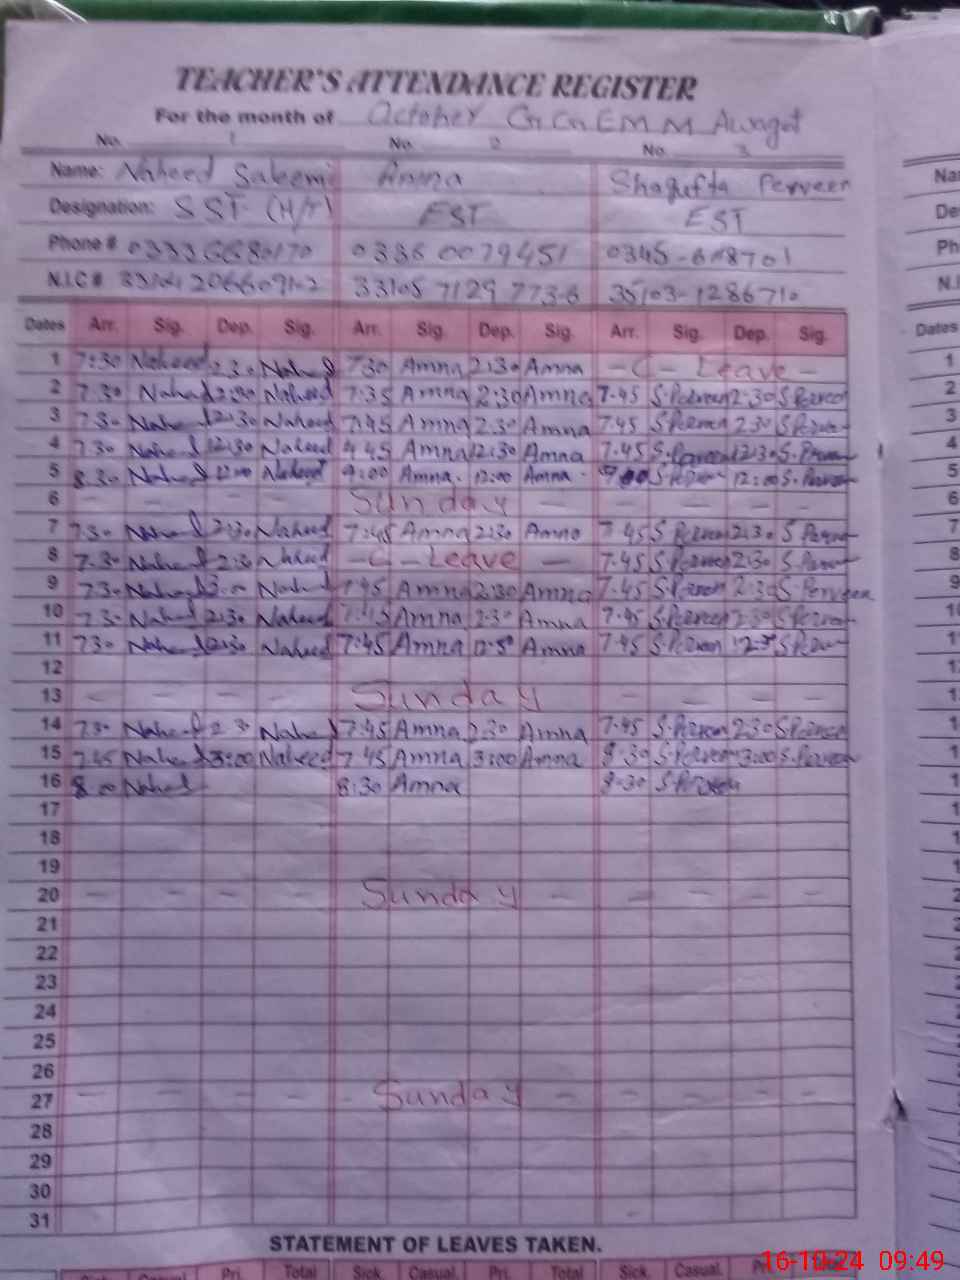 TEACHER'S ATTENDANCE REGISTER
For the month of October G.G.E.M.M Awagat
No. 1 No. 2 No. 3
Name: Naheed Saleemi Amna Shagufta Perveen
Designation: SST (H/T) EST EST
Phone # 0336 0079451
N.I.C #
Dates Arr. Sig. Dep. Sig. Arr. Sig. Dep. Sig. Arr. Sig. Dep. Sig.
1 7:30 Naheed 2:30 Naheed 7:30 Amna 2:30 Amna - C - Leave -
2 7:30 Naheed 2:30 Naheed 7:35 Amna 2:30 Amna 7.45 S.Perveen 2:30 S.Perveen
3 7.30 Naheed 2:30 Naheed 7:45 Amna 2:30 Amna 7.45 S.Perveen 2:30 S.Perveen
4 7.30 Naheed 12:30 Naheed Amna 12:30 Amna 7.45 S.Perveen 12:30 S.Perveen
5 8.30 Naheed 12:00 Naheed 9:00 Amna. 12:00 Amna. S.Perveen 12:00 S.Perveen
6 - - - - Sunday - - - - -
7 7.30 Naheed 2:30 Naheed 7:45 Amna 2:30 Amna 7.45 S.Perveen 2:30 S.Perveen
8 7.30 Naheed 2:30 Naheed - C - Leave - 7.45 S.Perveen 2:30 S.Perveen
9 7.30 Naheed Naheed 7:45 Amna 2:30 Amna 7.45 S.Perveen 2:30 S.Perveen
10 7.30 Naheed 2:30 Naheed 7:45 Amna 2:30 Amna 7.45 S.Perveen 2:30 S.Perveen
11 7.30 Naheed 12:30 Naheed 7:45 Amna Amna 7.45 S.Perveen S.Perveen
12
13 - - - - Sunday - - - -
14 7.30 Naheed 2:30 Naheed 7:45 Amna 2:30 Amna 7.45 S.Perveen 2:30 S.Perveen
15 7.45 Naheed 3:00 Naheed 7:45 Amna 3:00 Amna 8-30 S.Perveen 3:00 S.Perveen
16 8:00 Naheed 8:30 Amna 8-30 S.Perveen
17
18
19
20 - - - - Sunday - - - - -
21
22
23
24
25
26
27 - - - - - Sunday - - - - -
28
29
30
31
STATEMENT OF LEAVES TAKEN.
Sick. Casual. Pri. Total Sick. Casual. Pri. Total Sick. Casual.
16-10-24 09:49